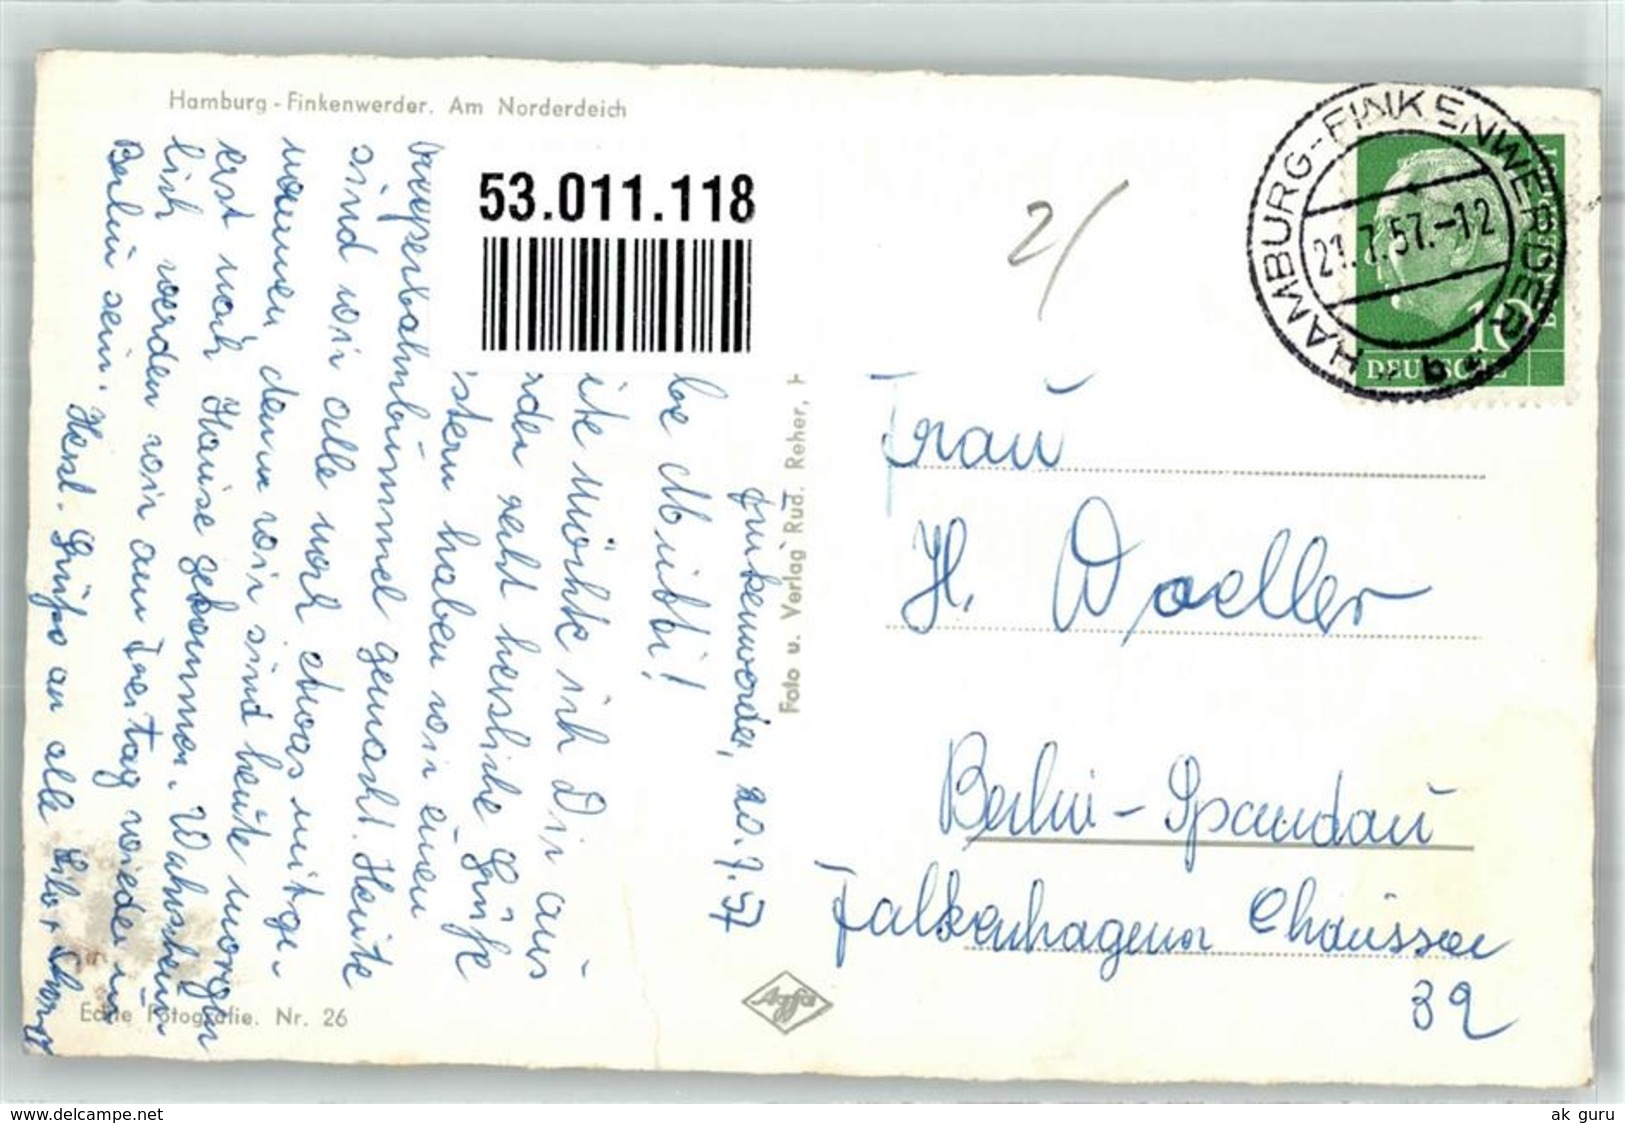 Hamburg - Finkenwerder. Am Norderdeich
53.011.118
2/
HAMBURG-FINKENWERDER
21.7.57.-12
b
10
DEUTSCHE
BUNDESPOST
Finkenwerder, 20.7.57
be Muitti!
ite möchte ich Dir aus
rder recht herzliche Grüße
stern haben wir einen
sind wir alle noch etwas mitge-
nommen, denn wir sind heute morgen
erst nach Hause gekommen. Wahrschein
lich werden wir am Freitag wieder in
Berlin sein. Herzl. Grüße an alle
Foto u. Verlag Rud. Reher, H
Agfa
Echte Fotografie. Nr. 26
Frau
H. Doeller
Berlin - Spandau
Falkenhagener Chaussee
39
www.delcampe.net
ak guru